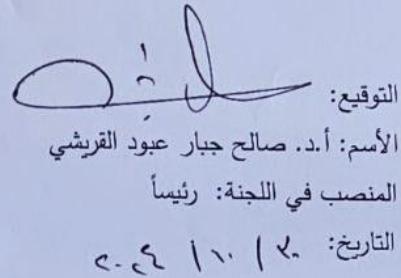 التوقيع:
الأسم: أ.د. صالح جبار عبود القريشي
المنصب في اللجنة: رئيساً
التاريخ: ٣٠ / ١٠ / ٢٠٢٤